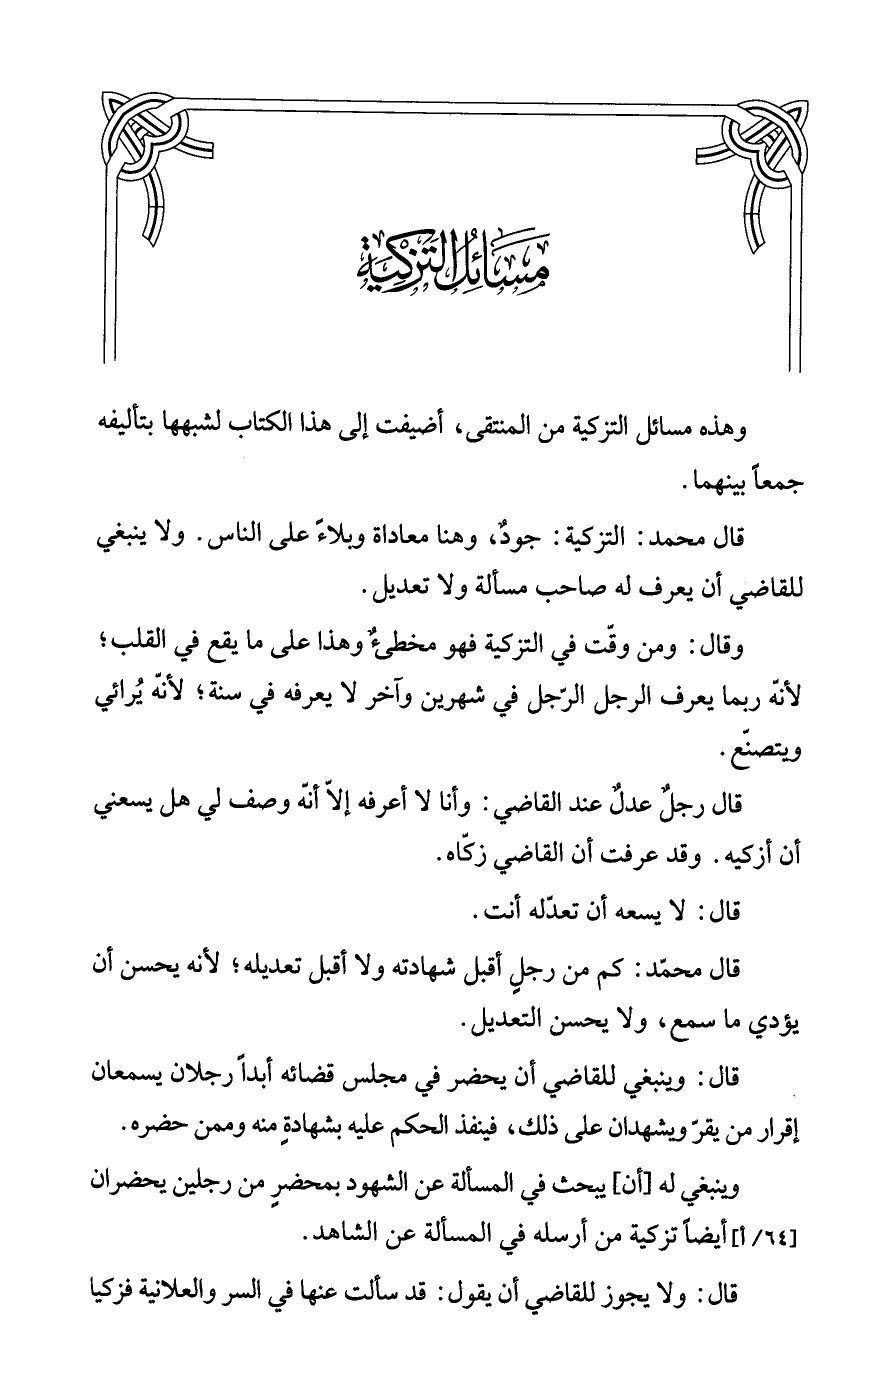 مسائل التزكية
وهذه مسائل التزكية من المنتقى، أضيفت إلى هذا الكتاب لشبهها بتأليفه
جمعاً بينهما.
قال محمد: التزكية: جودٌ، وهنا معاداة وبلاءً على الناس. ولا ينبغي
للقاضي أن يعرف له صاحب مسألة ولا تعديل.
وقال: ومن وقّت في التزكية فهو مخطىءٌ وهذا على ما يقع في القلب؛
لأنّه ربما يعرف الرجل الرّجل في شهرين وآخر لا يعرفه في سنة؛ لأنّه يُرائي
ويتصنّع.
قال رجلٌ عدلٌ عند القاضي: وأنا لا أعرفه إلاّ أنّه وصف لي هل يسعني
أن أزكيه. وقد عرفت أن القاضي زكّاه.
قال: لا يسعه أن تعدّله أنت.
قال محمّد: كم من رجلٍ أقبل شهادته ولا أقبل تعديله؛ لأنه يحسن أن
يؤدي ما سمع، ولا يحسن التعديل.
قال: وينبغي للقاضي أن يحضر في مجلس قضائه أبداً رجلان يسمعان
إقرار من يقرّ ويشهدان على ذلك، فينفذ الحكم عليه بشهادةٍ منه وممن حضره.
وينبغي له [أن] يبحث في المسألة عن الشهود بمحضرٍ من رجلين يحضران
[٦٤/أ] أيضاً تزكية من أرسله في المسألة عن الشاهد.
قال: ولا يجوز للقاضي أن يقول: قد سألت عنها في السر والعلانية فزكيا